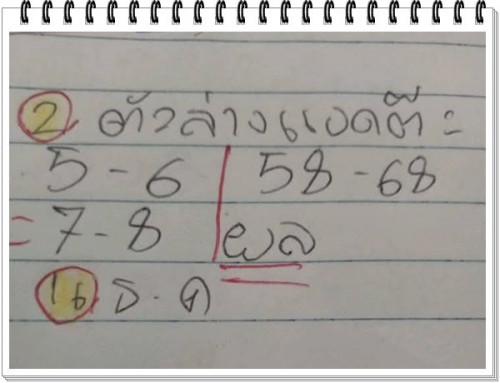 2 ตัวล่างแอดต๊ะ
5-6 | 58-68
= 7-8 | ผล
16 ธ.ค